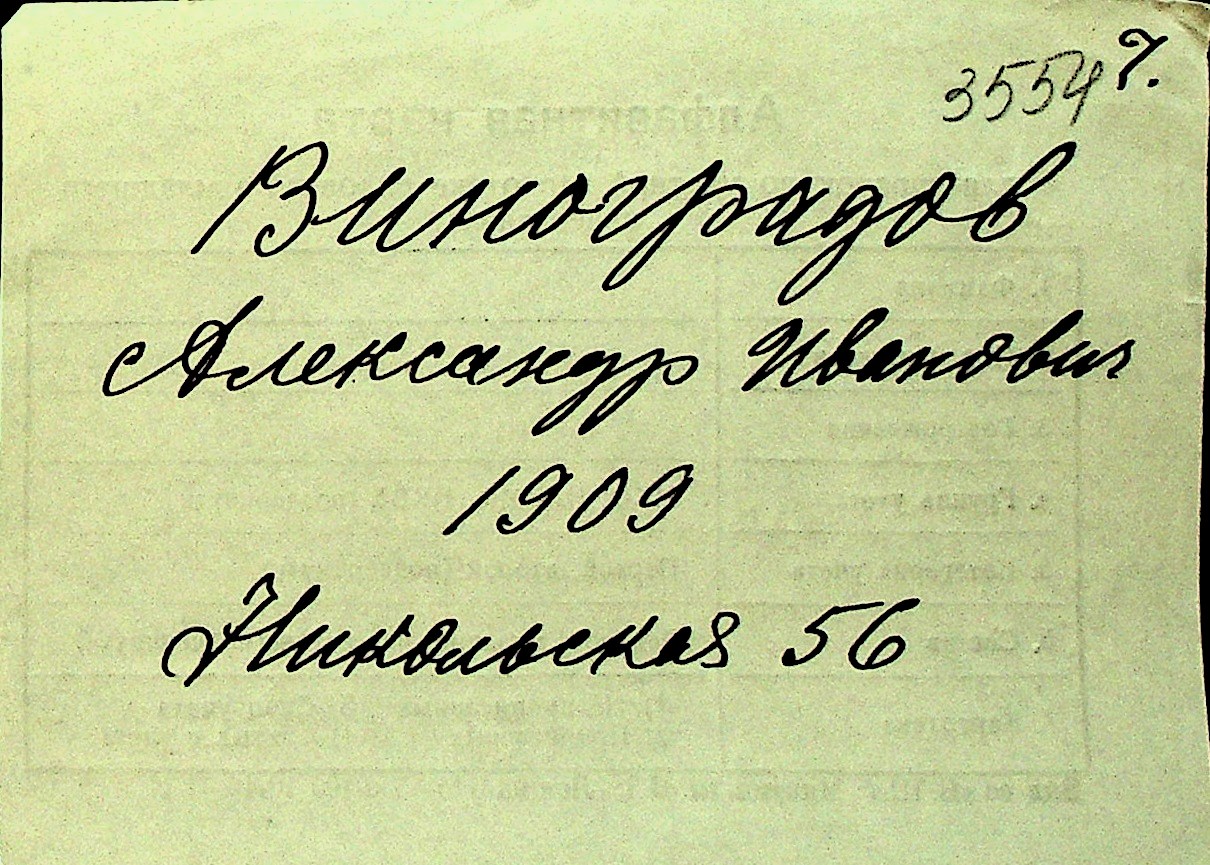 3554 7.
Виноградов
Александр Иванович
1909
Никольская 56